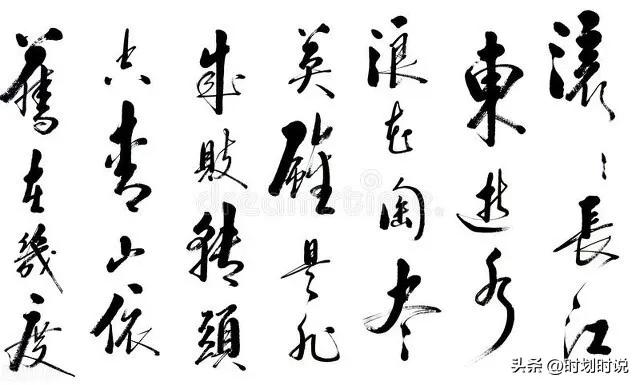 滚〻長江
東逝水
浪花淘尽
英雄是非
成敗轉頭
空青山依
舊在幾度
dreamstime
头条 @时划时说